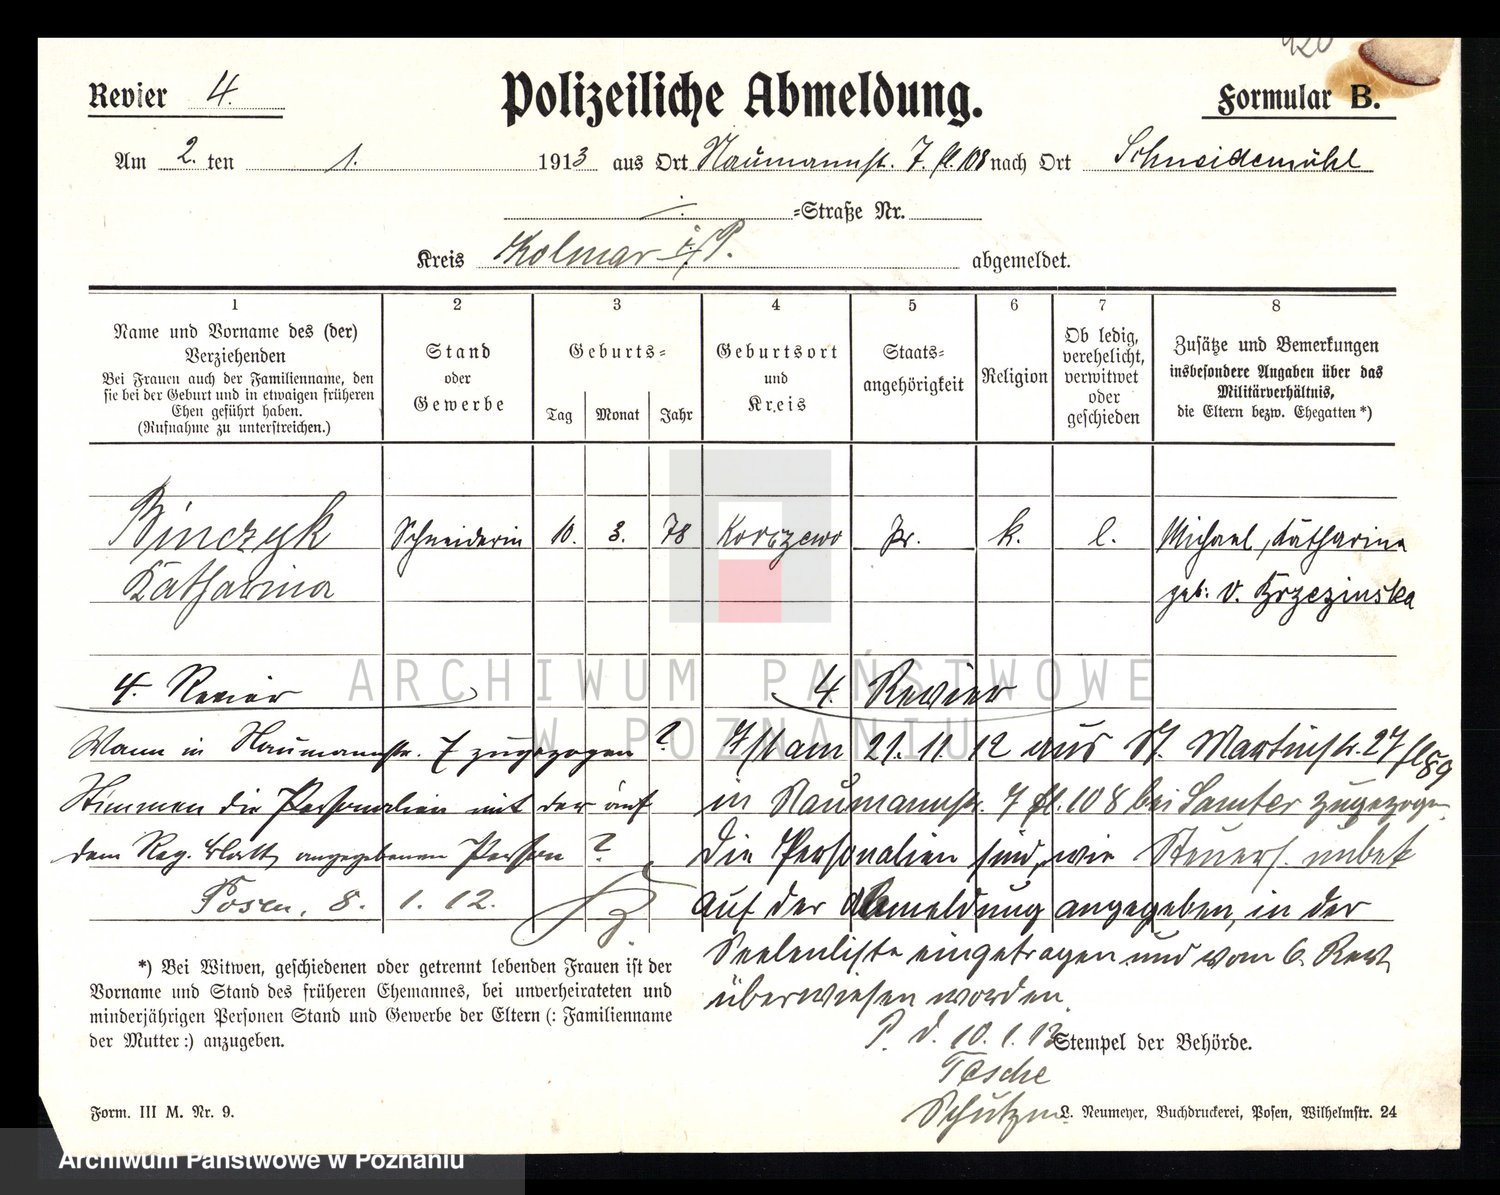 Revier 4.
Polizeiliche Abmeldung.
Formular B.
Am 2. ten 1. 1913 aus Ort Naumannstr. 7 fl. 108 nach Ort Schneidemühl
=Straße Nr.
Kreis Kolmar i/P. abgemeldet.
1 2 3 4 5 6 7 8
Name und Vorname des (der)
Verziehenden
Bei Frauen auch der Familienname, den
sie bei der Geburt und in etwaigen früheren
Ehen geführt haben.
(Rufname zu unterstreichen.)
Stand
oder
Gewerbe
Geburts=
Tag Monat Jahr
Geburtsort
und
Kreis
Staats=
angehörigkeit
Religion
Ob ledig,
verehelicht,
verwitwet
oder
geschieden
Zusätze und Bemerkungen
insbesondere Angaben über das
Militärverhältnis,
die Eltern bezw. Ehegatten *)
Binczyk Schneiderin 10. 3. 78 Korszewo Pr. k. l. Michael, Katharina
Katharina geb. v. Brzezinska
4. Revier
Wann in Naumannstr. 7 zugezogen ?
Stimmen die Personalien mit der auf
dem Reg. Blatt angegebenen Person ?
Posen, 8. 1. 12.
4. Revier
am 21. 11. 12 aus St. Martinstr. 27 fl 89
in Naumannstr. 7 fl. 108 bei Samter zugezogen
Die Personalien sind, wie
auf der Abmeldung angegeben, in der
Seelenliste eingetragen und vom 6. Rev.
überwiesen worden.
P. d. 10. 1. 13
Tesche
Schutzm.
*) Bei Witwen, geschiedenen oder getrennt lebenden Frauen ist der
Vorname und Stand des früheren Ehemannes, bei unverheirateten und
minderjährigen Personen Stand und Gewerbe der Eltern (: Familienname
der Mutter :) anzugeben.
Stempel der Behörde.
Form. III M. Nr. 9.
L. Neumeyer, Buchdruckerei, Posen, Wilhelmstr. 24
ARCHIWUM PAŃSTWOWE
W POZNANIU
Archiwum Państwowe w Poznaniu